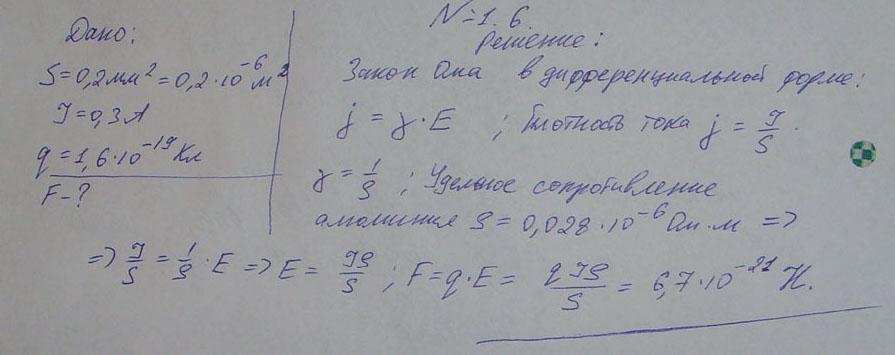 N=1.6.
Дано:
S=0,2мм²=0,2·10⁻⁶м²
J=0,3А
q=1,6·10⁻¹⁹Кл
F-?
Решение:
Закон Ома в дифференциальной форме:
j = γ·E ; Плотность тока j = J/S.
γ = 1/ρ ; Удельное сопротивление
алюминия ρ = 0,028·10⁻⁶ Ом·м =>
=> J/S = 1/ρ · E => E = Jρ/S ; F=q·E = qJρ/S = 6,7·10⁻²¹ Н.